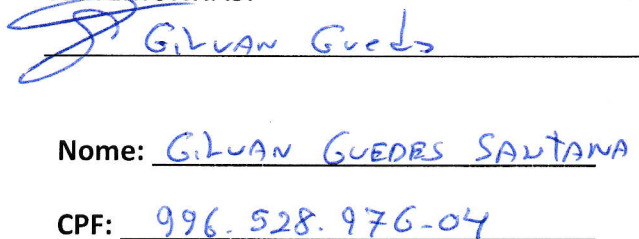 Gilvan Guedes
Nome: GILVAN GUEDES SANTANA
CPF: 996.528.976-04